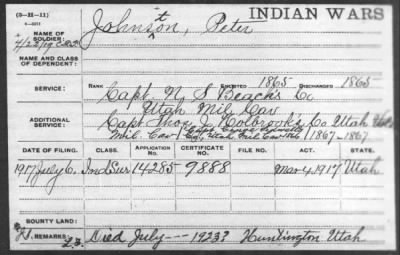 (3-H-11) INDIAN WARS
NAME OF SOLDIER: Johnst, Peter
NAME AND CLASS OF DEPENDENT:
SERVICE: RANK ENLISTED 1865 DISCHARGED 1865
Capt. N. S. Beach's Co
Utah Mil Cav
ADDITIONAL SERVICE: Capt Thos. J. Holbrooks Co Utah
Mil. Cav 1867-1867
DATE OF FILING. CLASS. APPLICATION NO. CERTIFICATE NO. ACT. STATE.
1917 July 6. Ind Sur 14285 9888 Mar 4, 1917 Utah
BOUNTY LAND:
REMARKS: Died July --- 1923? Huntington Utah